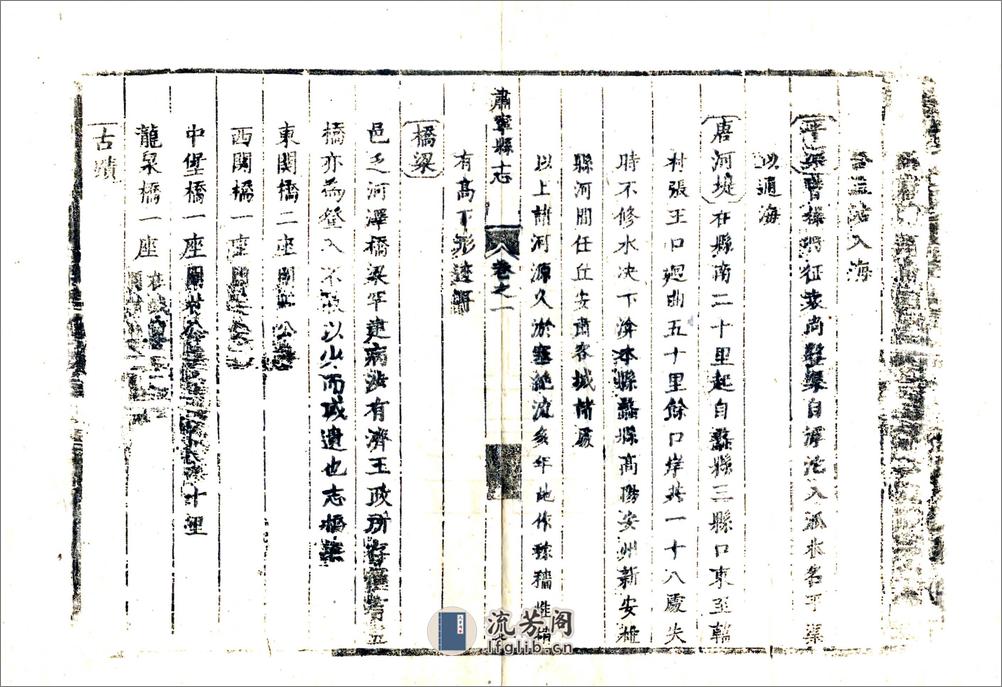 入海
平渠曹操將征袁尚鑿渠自滹沱入泒水名平渠
以通海
唐河堤在縣南二十里起自蠡縣三縣口東至韓
村張王口迴曲五十里餘口岸共一十八處失
時不修水決下渰本縣蠡縣高陽安州新安雄
縣河間任丘安肅容城諸處
以上諸河源久淤塞絶流多年地作稼穡惟
有高下形迹
肅寧縣志
卷之一
橋梁
邑乏河澤橋梁罕建病涉有濟王政所存
橋亦為登入不以少而或遺也志橋梁
東関橋二座
西関橋一座
中堡橋一座 十里
龍泉橋一座
古蹟
流芳阁
lfglib.cn